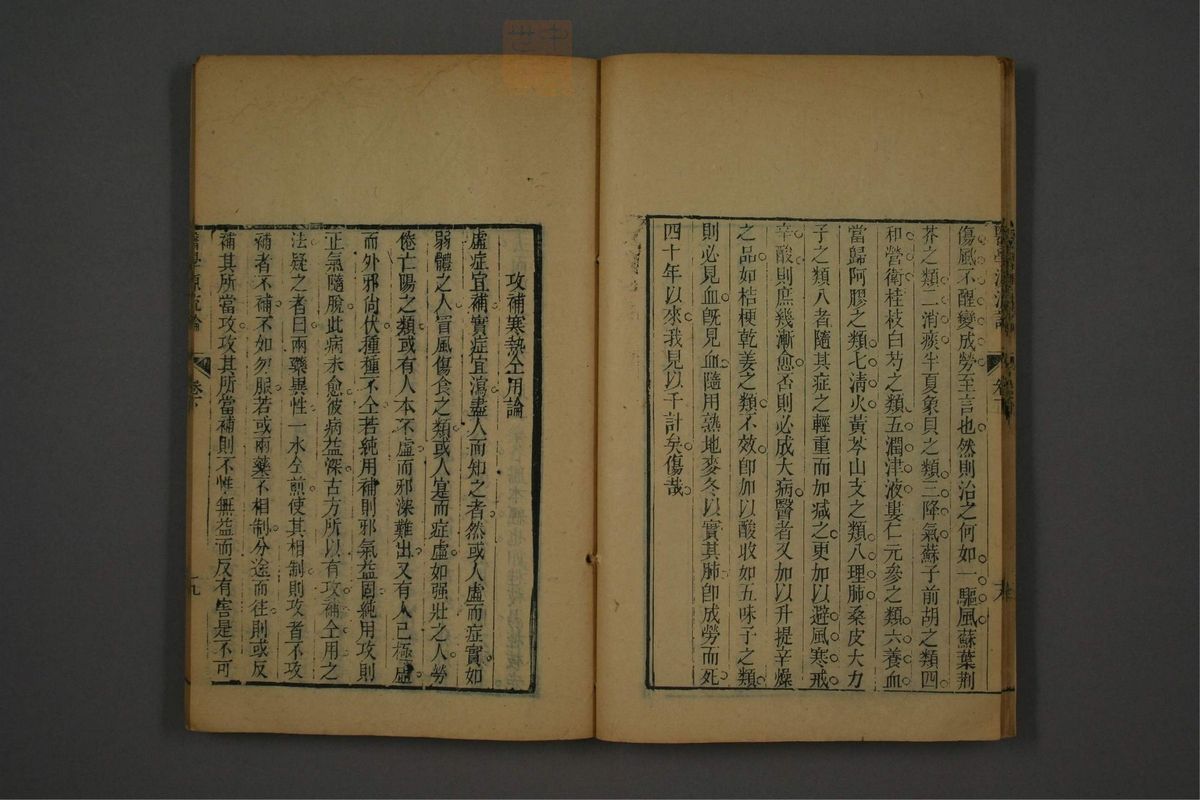 傷風不醒變成勞至言也然則治之何如一驅風蘇葉荆
芥之類二消痰半夏象貝之類三降氣蘇子前胡之類四
和營衛桂枝白芍之類五潤津液蔞仁元參之類六養血
當歸阿膠之類七淸火黃芩山支之類八理肺桑皮大力
子之類八者隨其症之輕重而加減之更加以避風寒戒
辛酸則庶幾漸愈否則必成大病醫者又加以升提辛燥
之品如桔梗乾姜之類不效卽加以酸收如五味子之類
則必見血旣見血隨用熟地麥冬以實其肺卽成勞而死
四十年以來我見以千計矣傷哉
攻補寒熱仝用論
虛症宜補實症宜瀉盡人而知之者然或人虛而症實如
弱體之人冒風傷食之類或人寔而症虛如强壯之人勞
倦亡陽之類或有人本不虛而邪深難出又有人已極虛
而外邪尙伏種種不仝若純用補則邪氣益固純用攻則
正氣隨脫此病未愈彼病益深古方所以有攻補仝用之
法疑之者曰兩藥異性一水仝煎使其相制則攻者不攻
補者不補不如勿服若或兩藥不相制分途而往則或反
補其所當攻攻其所當補則不惟無益而反有害是不可
醫學源流論
卷下
九